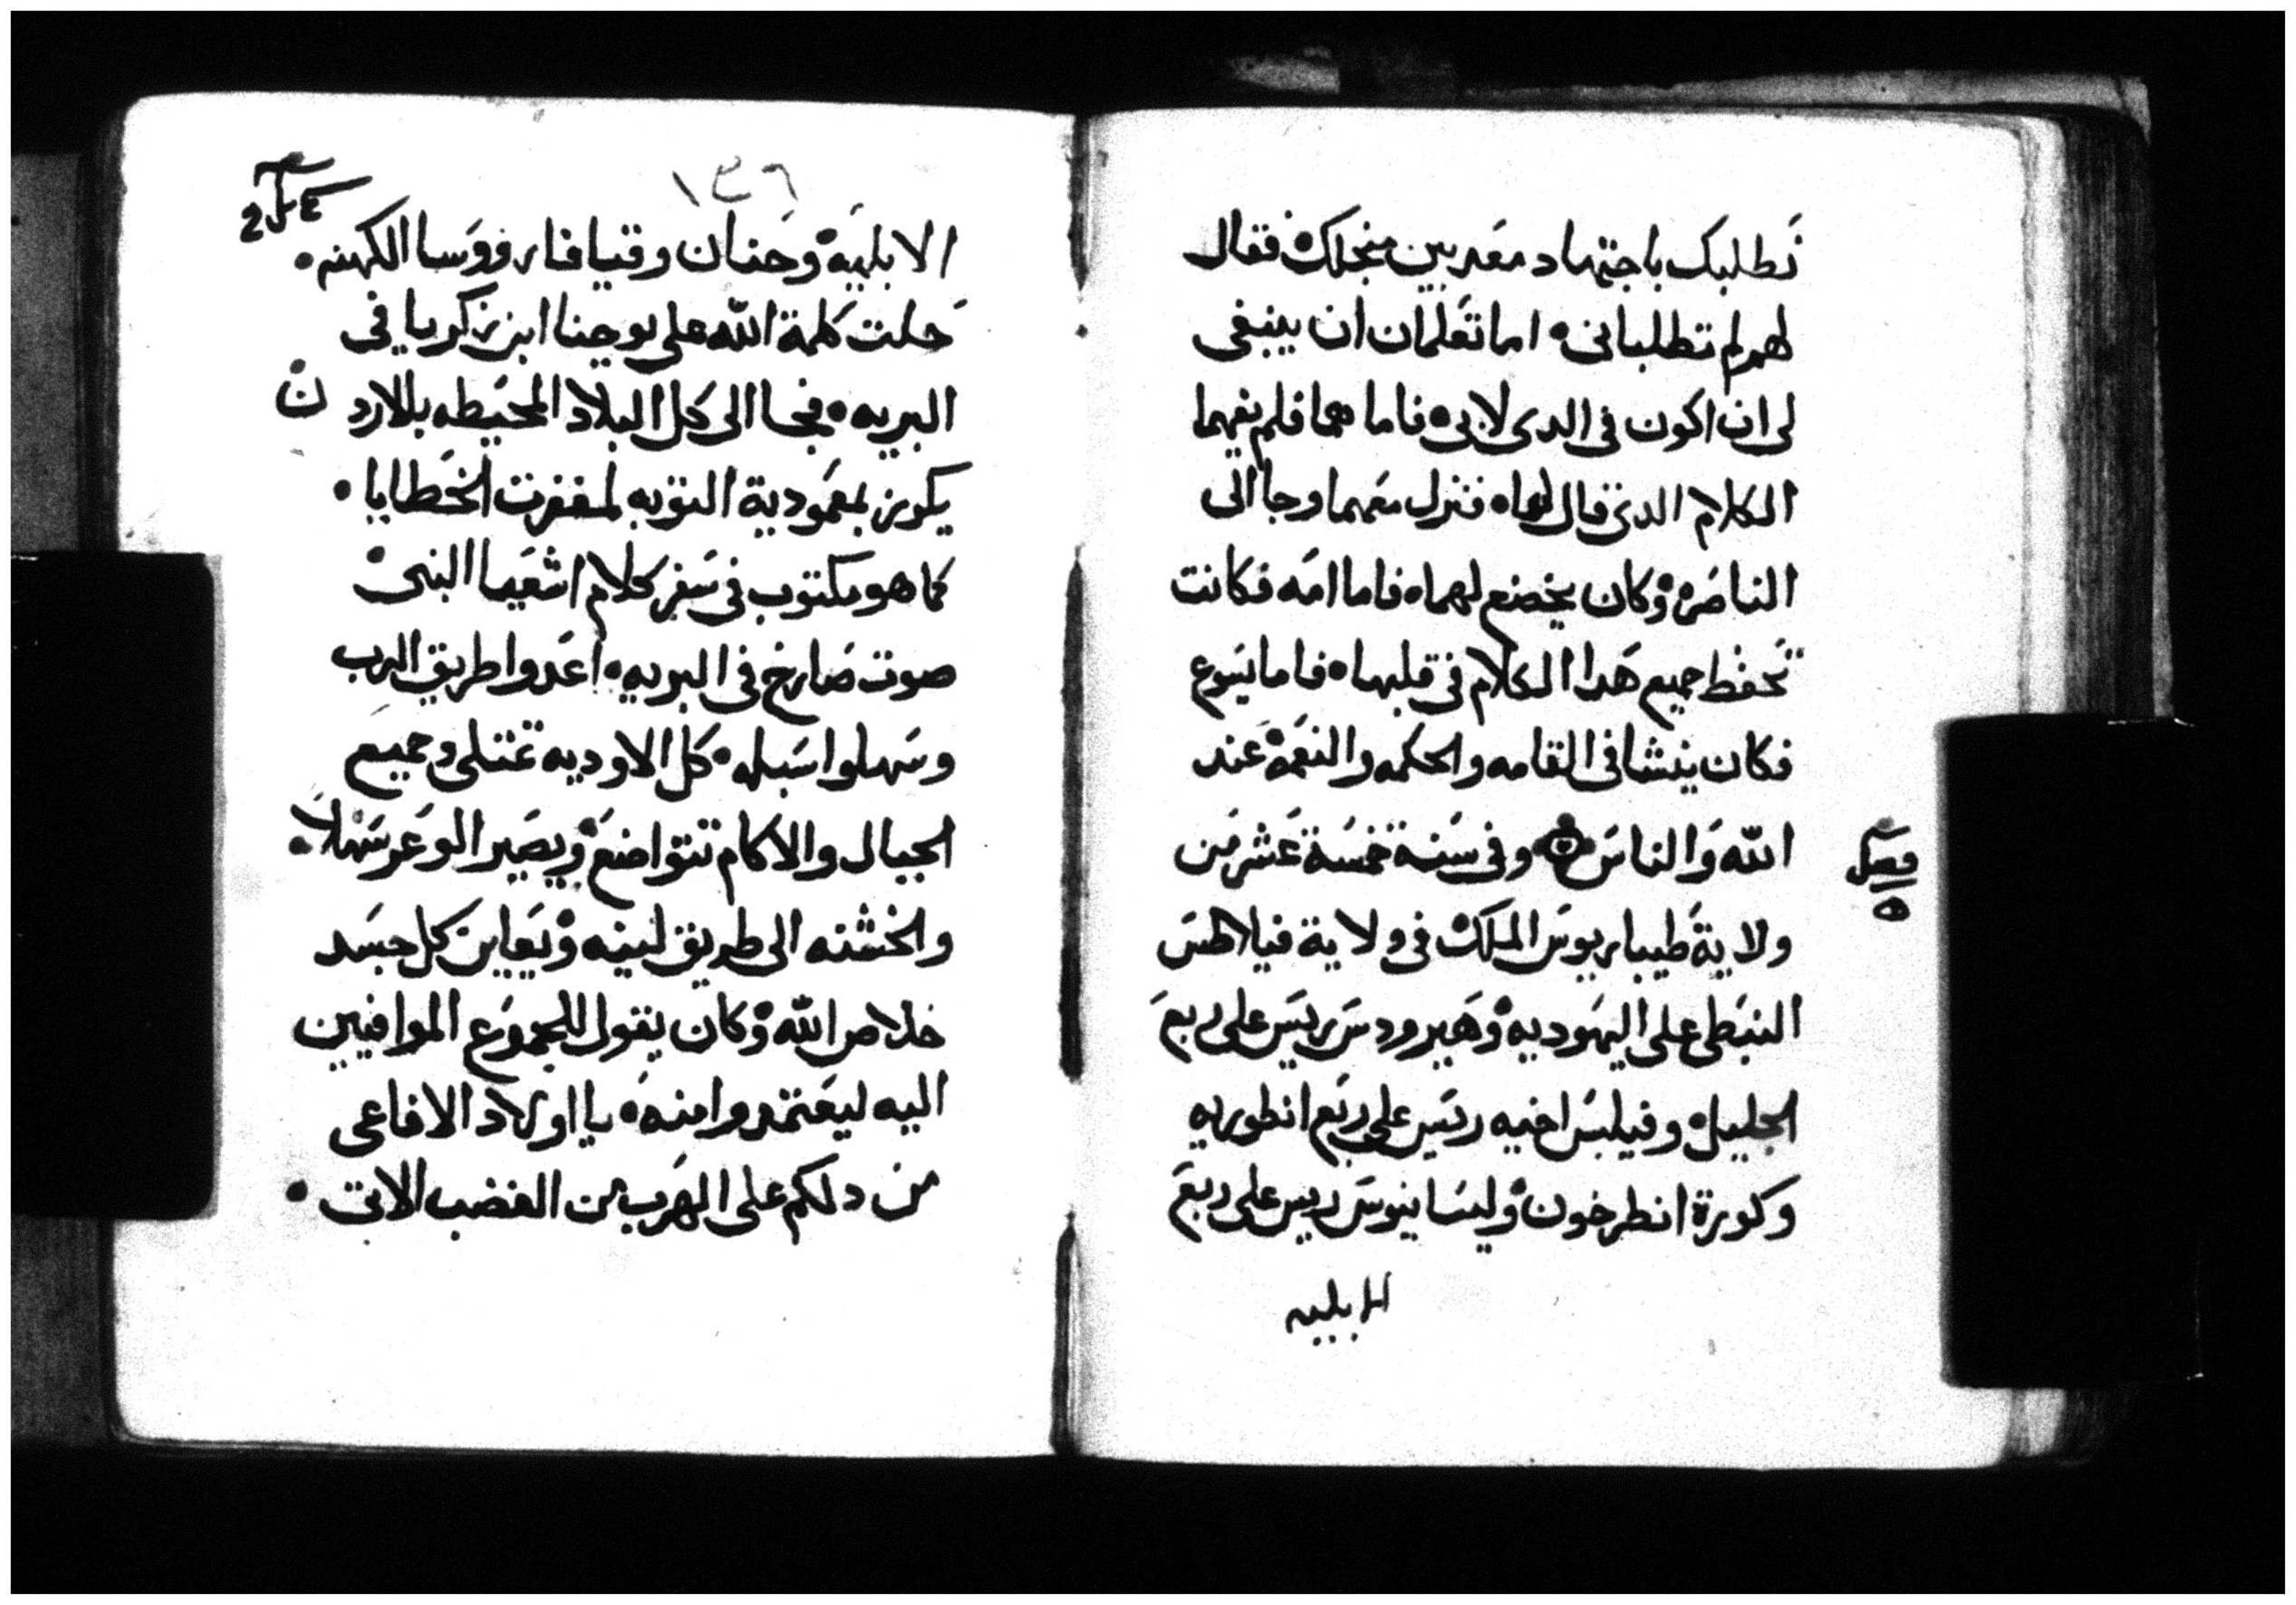 نطلبك باجتهاد معدبين منجلك فقال
لهم لم تطلبانى اما تعلمان ان ينبغى
لى ان اكون فى الدى لابى فاما هما فلم يفهما
الكلام الدى قال لهما فنزل معهما وجا الى
الناصره وكان يخضع لهما فاما امه فكانت
تحفظ جميع هدا الكلام فى قلبها فاما يسوع
فكان ينشا فى القامه والحكمه والنعمة عند
الله والناس وفى سنة خمسة عشر من
ولاية طيباريوس الملك فى ولاية فيلاطس
النبطى على اليهوديه وهيرودس ريس على ربع
الجليل وفيلبس اخيه ريس على ربع انطوريه
وكورة انطرخون وليسانيوس ريس على ربع
الابليه
فصل
٥
١٣٦
الابليه وحنان وقيافا روسا الكهنه
حلت كلمة الله على يوحنا ابن زكريا فى
البريه فجا الى كل البلاد المحيطه بالاردن
يكرز بمعمودية التوبه لمغفرت الخطايا
كما هو مكتوب فى سفر كلام اشعيا النبى
صوت صارخ فى البريه اعدوا طريق الرب
وسهلوا سبله كل الاوديه تمتلى وجميع
الجبال والاكام تتواضع ويصير الوعر سهلا
والخشنه الى طريق لينه ويعاين كل جسد
خلاص الله وكان يقول للجموع الموافيين
اليه ليعتمدوا منه يا اولاد الافاعى
من دلكم على الهرب من الغضب الاتى